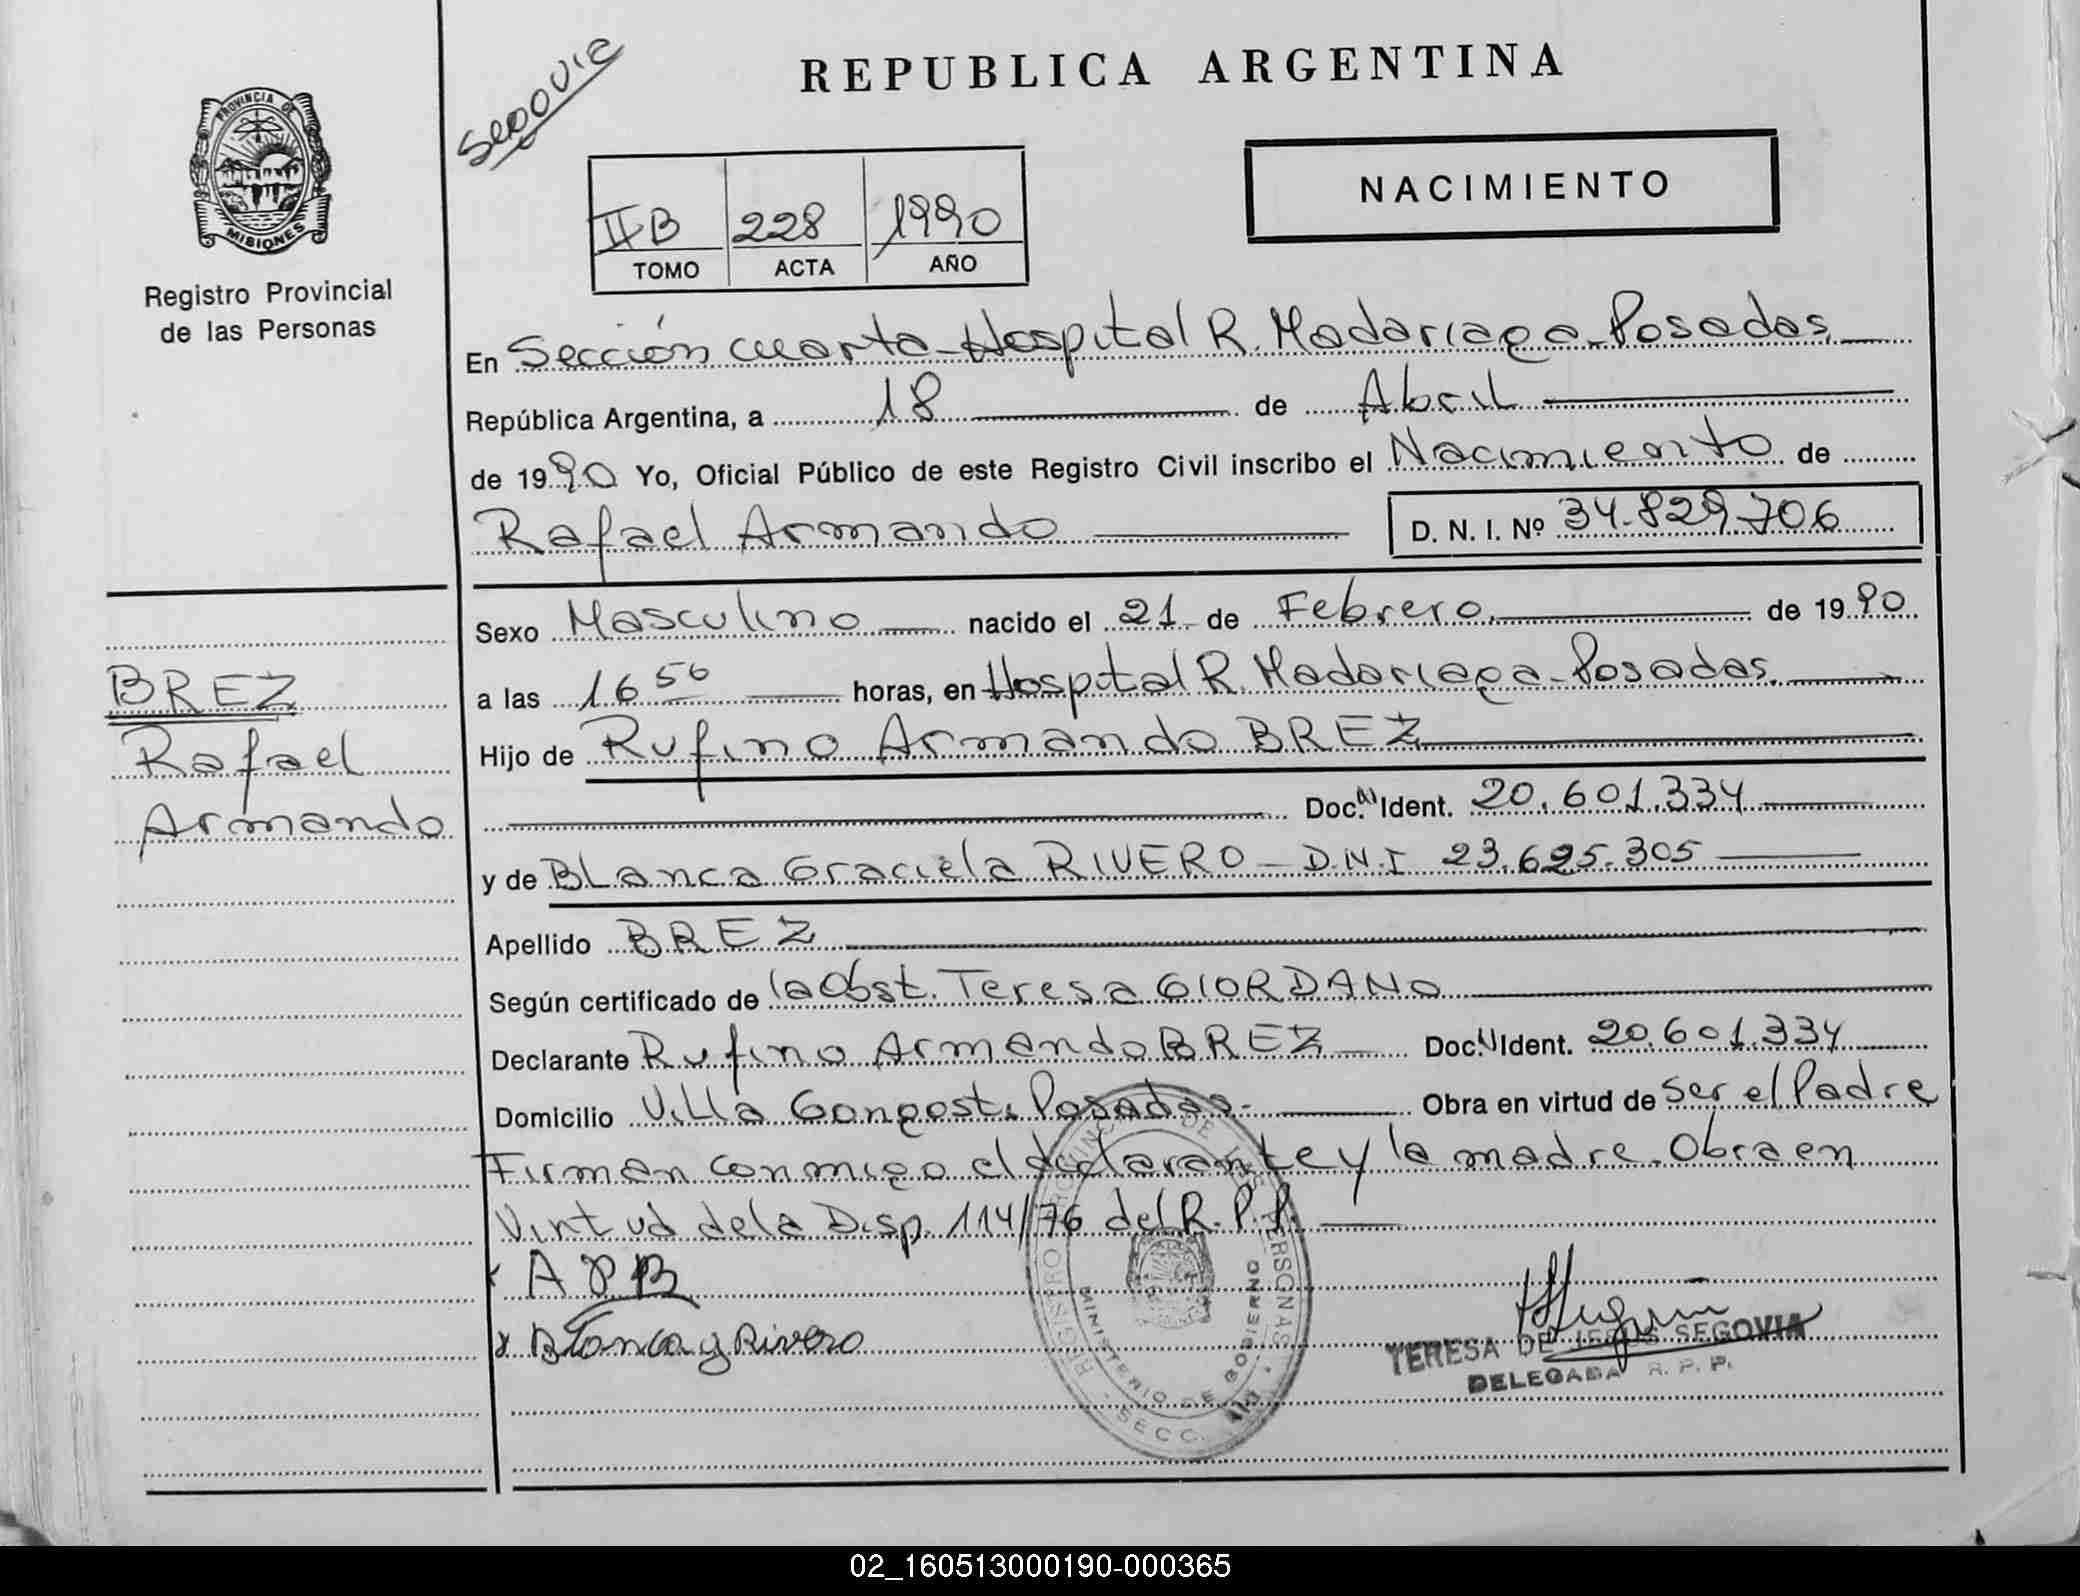 REPUBLICA ARGENTINA
PROVINCIA DE
MISIONES
Registro Provincial
de las Personas
SEGOVIA
NACIMIENTO
II B 228 1990
TOMO ACTA AÑO
En Sección cuarta - Hospital R. Madariaga - Posadas,
República Argentina, a 18 de Abril
de 1990 Yo, Oficial Público de este Registro Civil inscribo el Nacimiento de
Rafael Armando D. N. I. Nº 34.829.706
Sexo Masculino nacido el 21 de Febrero de 1990
a las 16 50 horas, en Hospital R. Madariaga - Posadas.
Hijo de Rufino Armando BREZ
Doc. N Ident. 20.601.334
y de Blanca Graciela RIVERO - D.N.I 23.625.305
Apellido BREZ
Según certificado de la Obst. Teresa GIORDANO
Declarante Rufino Armando BREZ Doc. N Ident. 20.601.334
Domicilio Villa Gongost. Posadas - Obra en virtud de Ser el Padre
Firman conmigo el declarante y la madre. Obra en
Virtud de la Disp. 114/76 del R.P.P.
x A R B
x Blanca g Rivero
BREZ
Rafael
Armando
REGISTRO PROVINCIAL DE LAS PERSONAS
MINISTERIO DE GOBIERNO
SECC.
TERESA DE JESUS SEGOVIA
DELEGADA R. P. P.
02_160513000190-000365